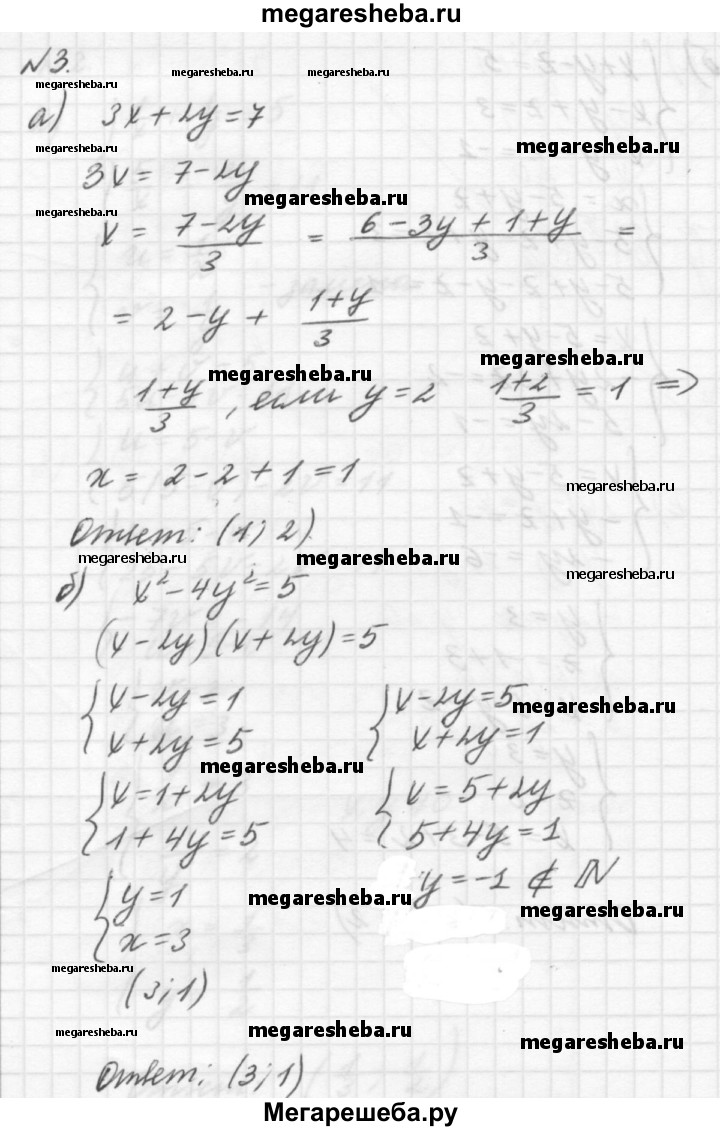 megaresheba.ru
N3.
megaresheba.ru megaresheba.ru megaresheba.ru
megaresheba.ru
а) 3x+2y=7
megaresheba.ru megaresheba.ru
3x = 7-2y
megaresheba.ru
megaresheba.ru
x = (7-2y)/3 = (6-3y+1+y)/3 =
= 2-y + (1+y)/3
megaresheba.ru
megaresheba.ru
(1+y)/3, если y=2 (1+2)/3 = 1 =>
x = 2-2+1=1
megaresheba.ru
Ответ: (1; 2)
megaresheba.ru megaresheba.ru
megaresheba.ru
б) x²-4y²=5
(x-2y)(x+2y)=5
{ x-2y=1 { x-2y=5
megaresheba.ru
{ x+2y=5 { x+2y=1
megaresheba.ru
{ x=1+2y { x=5+2y
{ 1+4y=5 { 5+4y=1
{ y=1 y=-1 ∉ N
megaresheba.ru megaresheba.ru
{ x=3
megaresheba.ru
(3;1)
megaresheba.ru megaresheba.ru megaresheba.ru
Ответ: (3;1)
Мегарешеба.ру